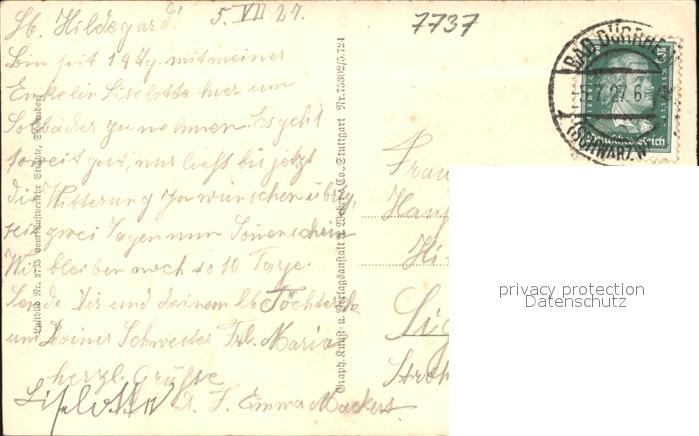 Lb. Hildegard! 5. VII 27.
Bin seit 14 Tg. mit meiner
Enkelin Liselotte hier um
Solbäder zu nehmen. Es geht
soweit gut, nur ließ bis jetzt
die Witterung zu wünschen übrig,
seit zwei Tagen nun Sonnenschein
Wir bleiben noch so 10 Tage.
Sende Dir und deinem lb Töchterch
und Deiner Schwester Frl. Maria
herzl. Grüße
Liselotte D. F. Emma Mackert
Luftbild Nr. 2715 Strähle, Schorndorf
Graph. Kunst- u. Verlagsanstalt Weber & Co., Stuttgart Nr. 15302/5.724
7737
BAD DÜRRHE
5.7.27 6-
(SCHWARZW
Deutsches Reich
Frau
Hau
Hi
Sig
Stroh
privacy protection
Datenschutz